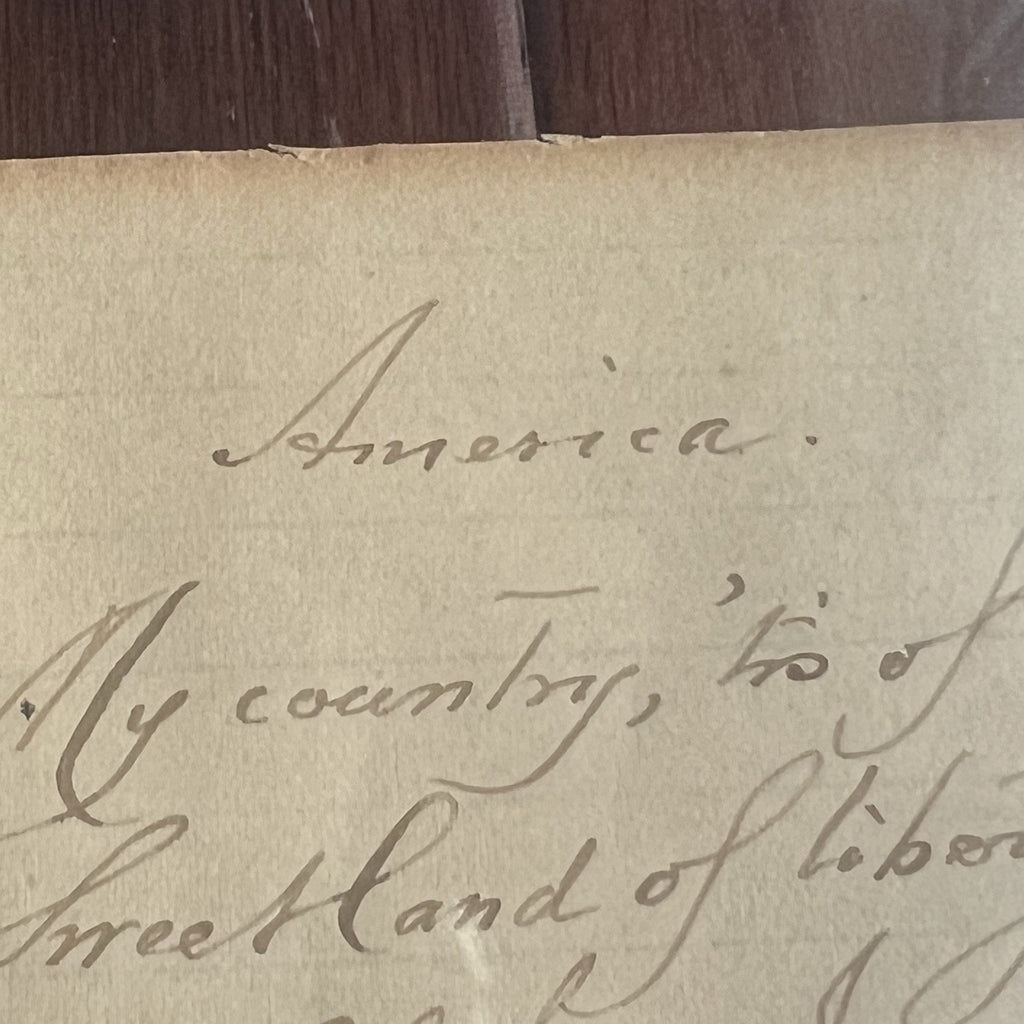 America.
My country, 'tis of
Sweet land of